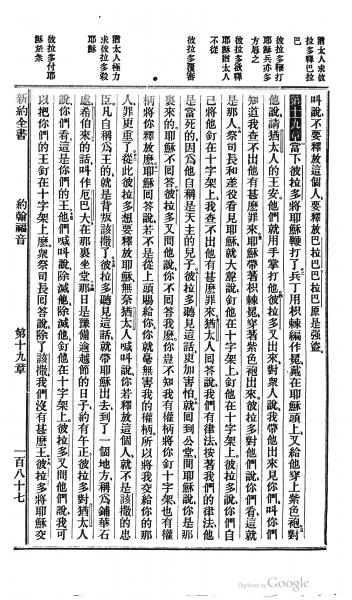 猶太人求彼
拉多釋巴拉
巴
彼拉多鞭打
耶穌兵亦多
方辱之
彼拉多欲釋
耶穌猶太人
不從
彼拉多覆審
猶太人極力
求彼拉多殺
耶穌
彼拉多付耶
穌於衆
叫說不要釋放這個人要釋放巴拉巴巴拉巴原是強盜
第十九章當下彼拉多將耶穌鞭打了兵丁用枳棘編作冕戴在耶穌頭上又給他穿上紫色袍對
他說請猶太人的王安他們就用手掌打他彼拉多又出來對衆人說我帶他出來見你們叫你們
知道我查不出他有甚麼罪來耶穌帶著枳棘冕穿著紫色袍出來彼拉多對他們說你們看這就
是那人祭司長和差役看見耶穌就大聲說釘他在十字架上釘他在十字架上彼拉多說你們自
己將他釘在十字架上我查不出他有甚麼罪來猶太人回答說我們有律法按著我們的律法他
是當死的因爲他自稱是天主的兒子彼拉多聽見這話更加害怕就回到公堂問耶穌說你是那
裏來的耶穌不回答彼拉多又問他說你不回答我麼你豈不知我有權柄將你釘十字架也有權
柄將你釋放麼耶穌回答說若不是從上頭賜給你你就毫無害我的權柄所以將我交給你的那
人罪更重了從此彼拉多想要釋放耶穌無奈猶太人喊叫說你若釋放這個人就不是該撒的忠
臣凡自稱爲王的就是背叛該撒了彼拉多聽見這話就帶耶穌出去到了一個地方稱爲鋪華石
處希伯來的話叫作厄巴大在那裏坐堂那日是豫備逾越節的日子約有午正彼拉多對猶太人
說你們看這是你們的王他們喊叫說除滅他除滅他釘他在十字架上彼拉多又問他們說我可
以把你們的王釘在十字架上麼衆祭司長回答說除了該撒我們沒有甚麼王彼拉多將耶穌交
新約全書
約翰福音
第十九章
一百八十七
Digitized by Google